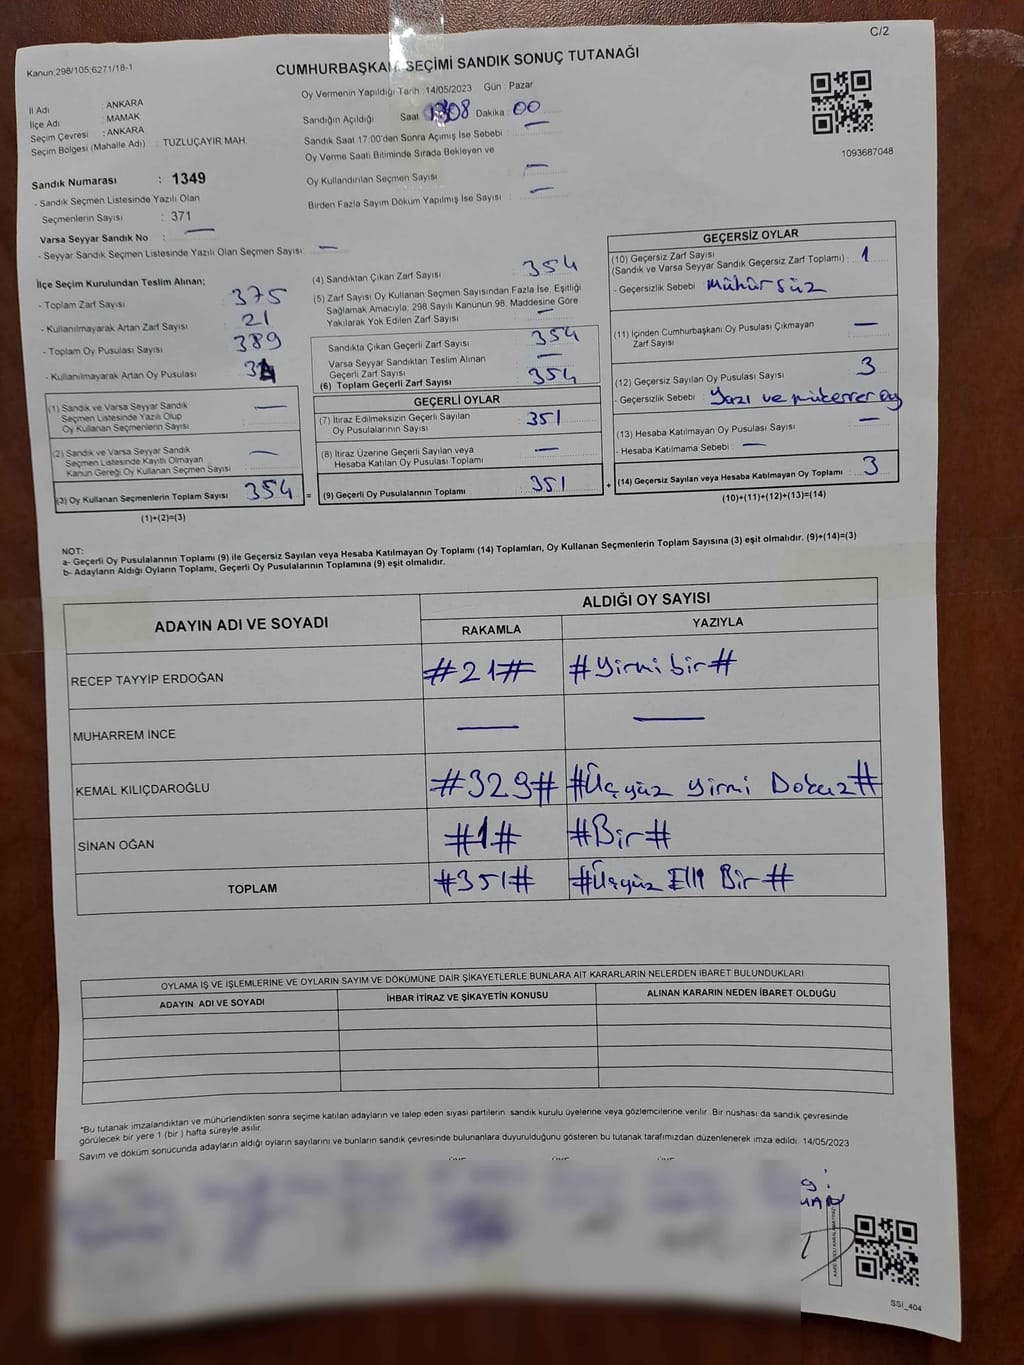 C/2
Kanun,298/105;6271/18-1
CUMHURBAŞKANI SEÇİMİ SANDIK SONUÇ TUTANAĞI
İl Adı : ANKARA
İlçe Adı : MAMAK
Seçim Çevresi : ANKARA
Seçim Bölgesi (Mahalle Adı) : TUZLUÇAYIR MAH.
Oy Vermenin Yapıldığı Tarih :14/05/2023 Gün : Pazar
Sandığın Açıldığı Saat Dakika 00
Sandık Saat 17.00'den Sonra Açımış İse Sebebi : —
Oy Verme Saati Bitiminde Sırada Bekleyen ve
Oy Kullandırılan Seçmen Sayısı : —
Birden Fazla Sayım Döküm Yapılmış İse Sayısı : —
1093687048
Sandık Numarası : 1349
- Sandık Seçmen Listesinde Yazılı Olan
Seçmenlerin Sayısı : 371
Varsa Seyyar Sandık No : —
- Seyyar Sandık Seçmen Listesinde Yazılı Olan Seçmen Sayısı : —
İlçe Seçim Kurulundan Teslim Alınan;
- Toplam Zarf Sayısı : 375
- Kullanılmayarak Artan Zarf Sayısı : 21
- Toplam Oy Pusulası Sayısı : 389
- Kullanılmayarak Artan Oy Pusulası :
(1) Sandık ve Varsa Seyyar Sandık
Seçmen Listesinde Yazılı Olup
Oy Kullanan Seçmenlerin Sayısı : —
(2) Sandık ve Varsa Seyyar Sandık
Seçmen Listesinde Kayıtlı Olmayan
Kanun Gereği Oy Kullanan Seçmen Sayısı : —
(3) Oy Kullanan Seçmenlerin Toplam Sayısı 354 =
(1)+(2)=(3)
(4) Sandıktan Çıkan Zarf Sayısı : 354
(5) Zarf Sayısı Oy Kullanan Seçmen Sayısından Fazla İse, Eşitliği
Sağlamak Amacıyla, 298 Sayılı Kanunun 98. Maddesine Göre
Yakılarak Yok Edilen Zarf Sayısı : —
Sandıkta Çıkan Geçerli Zarf Sayısı : 354
Varsa Seyyar Sandıktan Teslim Alınan
Geçerli Zarf Sayısı : —
(6) Toplam Geçerli Zarf Sayısı : 354
GEÇERLİ OYLAR
(7) İtiraz Edilmeksizin Geçerli Sayılan
Oy Pusulalarının Sayısı : 351
(8) İtiraz Üzerine Geçerli Sayılan veya
Hesaba Katılan Oy Pusulası Toplamı : —
(9) Geçerli Oy Pusulalarının Toplamı : 351 +
GEÇERSİZ OYLAR
(10) Geçersiz Zarf Sayısı
(Sandık ve Varsa Seyyar Sandık Geçersiz Zarf Toplamı) : 1
- Geçersizlik Sebebi : Mühürsüz
(11) İçinden Cumhurbaşkanı Oy Pusulası Çıkmayan
Zarf Sayısı : —
(12) Geçersiz Sayılan Oy Pusulası Sayısı : 3
- Geçersizlik Sebebi : Yazı ve mükerrer oy
(13) Hesaba Katılmayan Oy Pusulası Sayısı : —
- Hesaba Katılmama Sebebi : —
(14) Geçersiz Sayılan veya Hesaba Katılmayan Oy Toplamı : 3
(10)+(11)+(12)+(13)=(14)
NOT:
a- Geçerli Oy Pusulalarının Toplamı (9) ile Geçersiz Sayılan veya Hesaba Katılmayan Oy Toplamı (14) Toplamları, Oy Kullanan Seçmenlerin Toplam Sayısına (3) eşit olmalıdır. (9)+(14)=(3)
b- Adayların Aldığı Oyların Toplamı, Geçerli Oy Pusulalarının Toplamına (9) eşit olmalıdır.
ADAYIN ADI VE SOYADI
ALDIĞI OY SAYISI
RAKAMLA YAZIYLA
RECEP TAYYİP ERDOĞAN #21# #Yirmi bir#
MUHARREM İNCE — —
KEMAL KILIÇDAROĞLU #329# #Üçyüz yirmi Dokuz#
SİNAN OĞAN #1# #Bir#
TOPLAM #351# #Üçyüz Elli Bir#
OYLAMA İŞ VE İŞLEMLERİNE VE OYLARIN SAYIM VE DÖKÜMÜNE DAİR ŞİKAYETLERLE BUNLARA AİT KARARLARIN NELERDEN İBARET BULUNDUKLARI
ADAYIN ADI VE SOYADI İHBAR İTİRAZ VE ŞİKAYETİN KONUSU ALINAN KARARIN NEDEN İBARET OLDUĞU
*Bu tutanak imzalandıktan ve mühürlendikten sonra seçime katılan adayların ve talep eden siyasi partilerin sandık kurulu üyelerine veya gözlemcilerine verilir. Bir nüshası da sandık çevresinde
görülecek bir yere 1 (bir ) hafta süreyle asılır.
Sayım ve döküm sonucunda adayların aldığı oyların sayılarını ve bunların sandık çevresinde bulunanlara duyurulduğunu gösteren bu tutanak tarafımızdan düzenlenerek imza edildi. 14/05/2023
SSİ_404